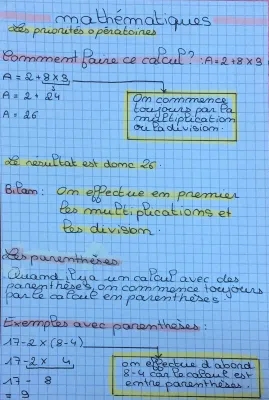 mathématiques
Les priorités opératoires
Comment faire ce calcul? : A=2+8×3
A = 2+8×3
A = 2+ 24
A = 26
On commence
toujours par la
multiplication
ou la division.
Le resultat est donc 26.
Bilam : On effectue en premier
les multiplications et
les division.
Les parenthèses
Quand il y a un calcul avec des
parenthèses, on commence toujours
par le calcul en parenthèses.
Exemples avec parenthèses :
17-2×(8-4)
17-2× 4
17 - 8
= 9
on effectue d'abord
8-4 car le calcul est
entre parenthèses.